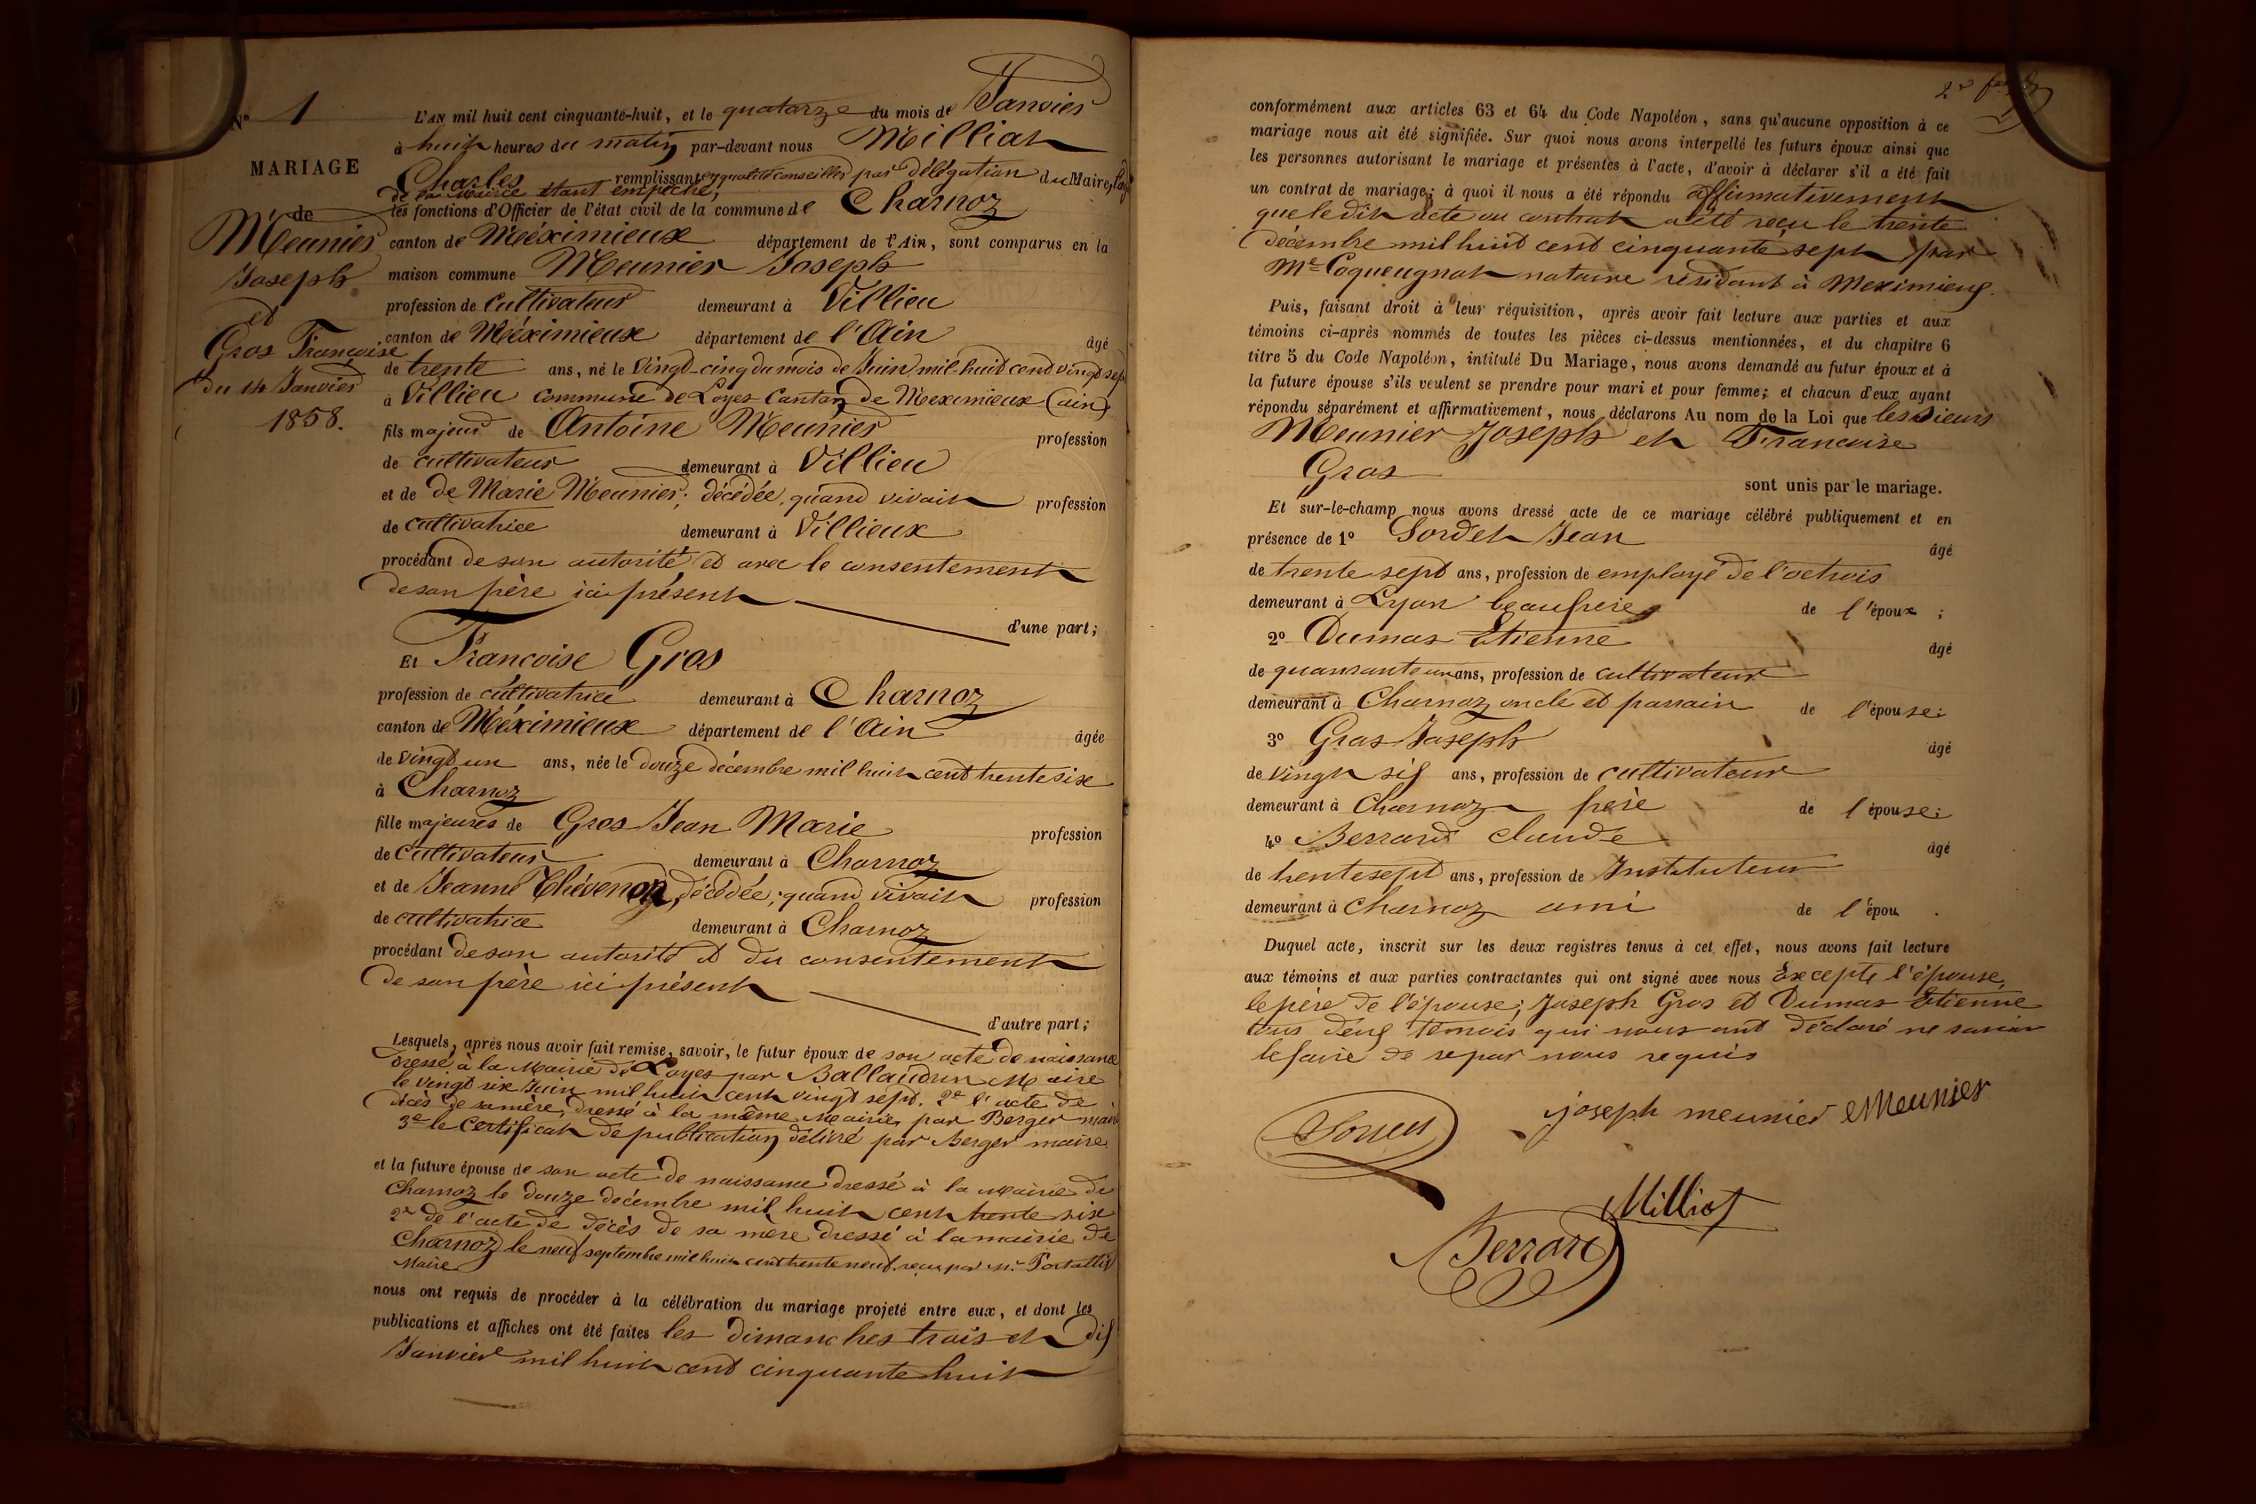 N° 1
MARIAGE
de
Meunier
Joseph
et
Gros Françoise
du 14 Janvier
1858.
L'AN mil huit cent cinquante-huit, et le quatorze du mois de Janvier
à huit heures du matin par-devant nous Milliat
Charles remplissant en qualité conseiller par délégation du Maire,
de la mairie étant empêché,
les fonctions d'Officier de l'état civil de la commune de Charnoz
canton de Méximieux département de l'Ain, sont comparus en la
maison commune Meunier Joseph
profession de cultivateur demeurant à Villieu
canton de Méximieux département de l'Ain âgé
de trente ans, né le Vingt-cinq du mois de Juin mil-huit cent vingt sept
à Villieu commune de Loyes Canton de Meximieux (ain)
fils majeur de Antoine Meunier profession
de cultivateur demeurant à Villieu
et de de Marie Meunier, décédée, quand vivait profession
de cultivatrice demeurant à Villieux
procédant de son autorité et avec le consentement
de son père ici présent
d'une part;
Et Françoise Gros
profession de cultivatrice demeurant à Charnoz
canton de Méximieux département de l'Ain âgée
de vingt un ans, née le douze décembre mil huit cent trente six
à Charnoz
fille majeures de Gros Jean Marie profession
de cultivateur demeurant à Charnoz
et de Jeanne Thévenon, décédée; quand vivait profession
de cultivatrice demeurant à Charnoz
procédant de son autorité et du consentement
de son père ici présent
d'autre part;
Lesquels, après nous avoir fait remise, savoir, le futur époux de son acte de naissance
dressé à la Mairie de Loyes par Ballaudrin Maire
le vingt six Juin mil huit cent vingt sept. 2° l'acte de
décès de sa mère, dressé à la même Mairie, par Berger maire
3° le certificat de publication délivré par Berger maire
et la future épouse de son acte de naissance dressé à la Mairie de
Charnoz le douze décembre mil huit cent trente six
2° de l'acte de décès de sa mère dressé à la mairie de
Charnoz le neuf septembre mil huit cent trente neuf reçu par Mr.
Maire
nous ont requis de procéder à la célébration du mariage projeté entre eux, et dont les
publications et affiches ont été faites les dimanches trois et dix
Janvier mil huit cent cinquante huit
conformément aux articles 63 et 64 du Code Napoléon, sans qu'aucune opposition à ce
mariage nous ait été signifiée. Sur quoi nous avons interpellé les futurs époux ainsi que
les personnes autorisant le mariage et présentes à l'acte, d'avoir à déclarer s'il a été fait
un contrat de mariage; à quoi il nous a été répondu affirmativement
que le dit acte ou contrat a été reçu le trente
décembre mil huit cent cinquante sept par
Me Coqueugnat notaire résidant à Meximieux.
Puis, faisant droit à leur réquisition, après avoir fait lecture aux parties et aux
témoins ci-après nommés de toutes les pièces ci-dessus mentionnées, et du chapitre 6
titre 5 du Code Napoléon, intitulé Du Mariage, nous avons demandé au futur époux et à
la future épouse s'ils veulent se prendre pour mari et pour femme; et chacun d'eux ayant
répondu séparément et affirmativement, nous déclarons Au nom de la Loi que les sieurs
Meunier Joseph et Francoise
Gros
sont unis par le mariage.
Et sur-le-champ nous avons dressé acte de ce mariage célébré publiquement et en
présence de 1° Sordet Jean âgé
de trente sept ans, profession de employé de l'octrois
demeurant à Lyon beaufrère de l'époux;
2° Dumas Etienne âgé
de quarante un ans, profession de cultivateur
demeurant à Charnoz oncle et parrain de l'épouse;
3° Gros Joseph âgé
de Vingt six ans, profession de cultivateur
demeurant à Charnoz frère de l'épouse;
4° Berrard Claude âgé
de trente sept ans, profession de Instituteur
demeurant à Charnoz ami de l'épou .
Duquel acte, inscrit sur les deux registres tenus à cet effet, nous avons fait lecture
aux témoins et aux parties contractantes qui ont signé avec nous Excepté l'épouse,
le père de l'épouse; Joseph Gros et Dumas Etienne
tous deux témois qui nous ont déclaré ne savoir
le faire de ce par nous requis
joseph meunier Meunier
Milliat
Berrard